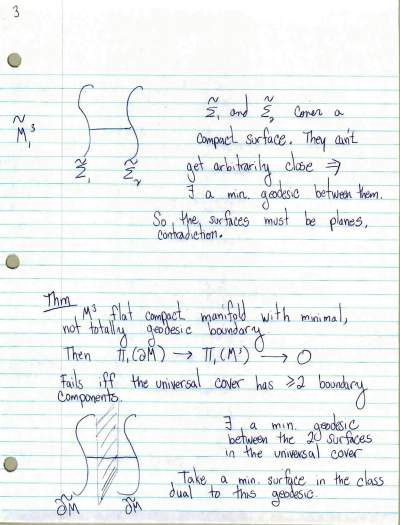 3
Σ̃₁ and Σ̃₂ cover a
M̃₁³
compact surface. They can't
Σ̃₁ Σ̃₂
get arbitrarily close ⇒
∃ a min. geodesic between them.
So the surfaces must be planes,
contradiction.
Thm
M³ flat compact manifold with minimal,
not totally geodesic boundary.
Then Π₁(∂M) → Π₁(M³) → O
Fails iff the universal cover has ≥2 boundary
components.
∃ a min. geodesic
between the 2 surfaces
in the universal cover
Take a min. surface in the class
dual to this geodesic.
∂M̃ ∂M̃